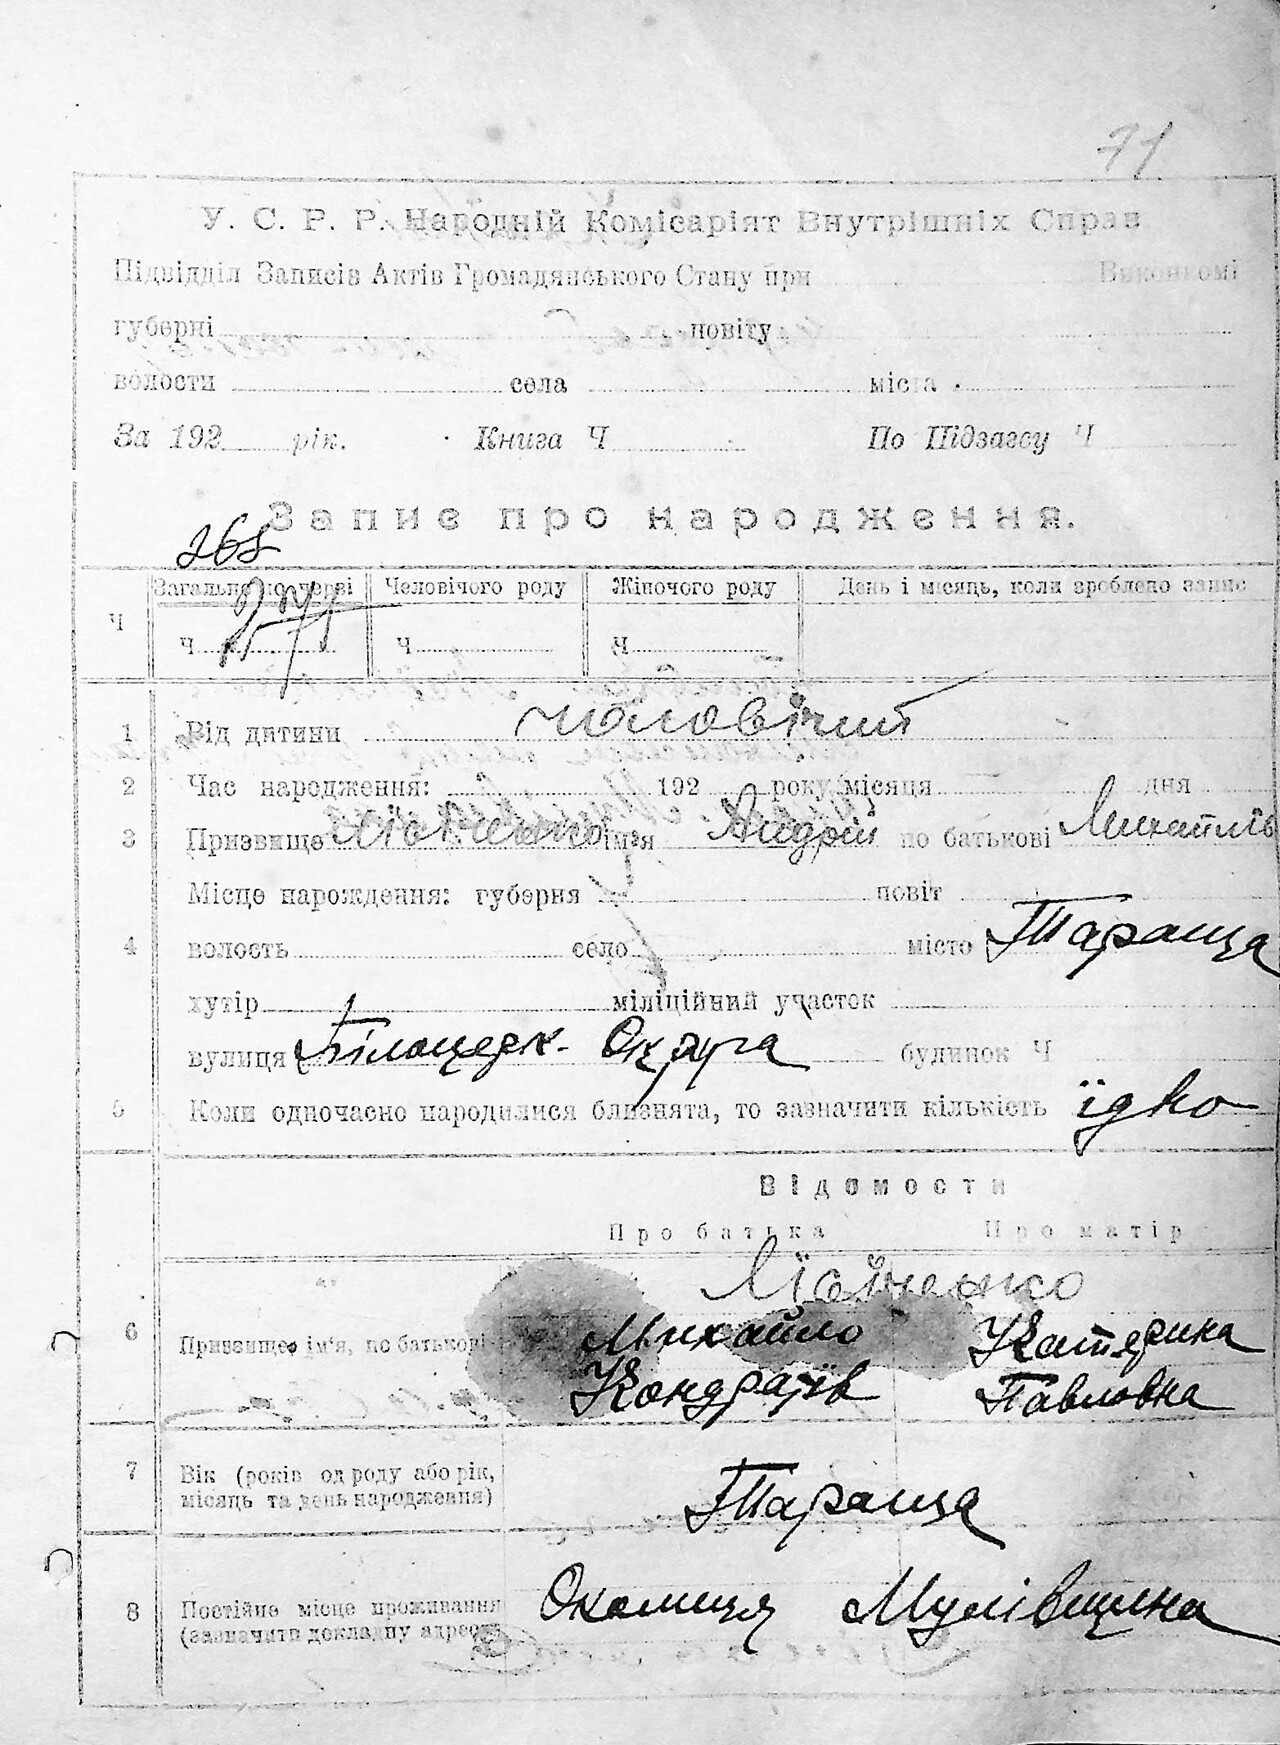 71
У. С. Р. Р. Народній Комісаріят Внутрішніх Справ
Підвідділ Записів Актів Громадянського Стану при Виконкомі
губерні повіту
волости села міста
За 192 рік. Книга Ч По Підзагсу Ч
Запис про народження.
268
Ч Загальн по черві Человічого роду Жіночого роду День і місяць, коли зроблено запис
Ч Ч Ч
1 Від дитини чоловічий
2 Час народження: 192 року місяця дня
3 Призвище ім'я Андрій по батькові Михайлів
Місце нарождення: губерня повіт
4 волость село місто Тараща
хутір міліційний участок
вулиця Білоцерк. Округа будинок Ч
5 Коли одночасно народилися близнята, то зазначити кількість їдно
Відомости
Про батька Про матір
6 Призвище, ім'я, по батькові Михайло Катерина
Кондратів Павловна
7 Вік (років од роду або рік,
місяць та день народження) Тараща
8 Постійне місце проживання Околиця Мулівщина
(зазначити докладну адресу)